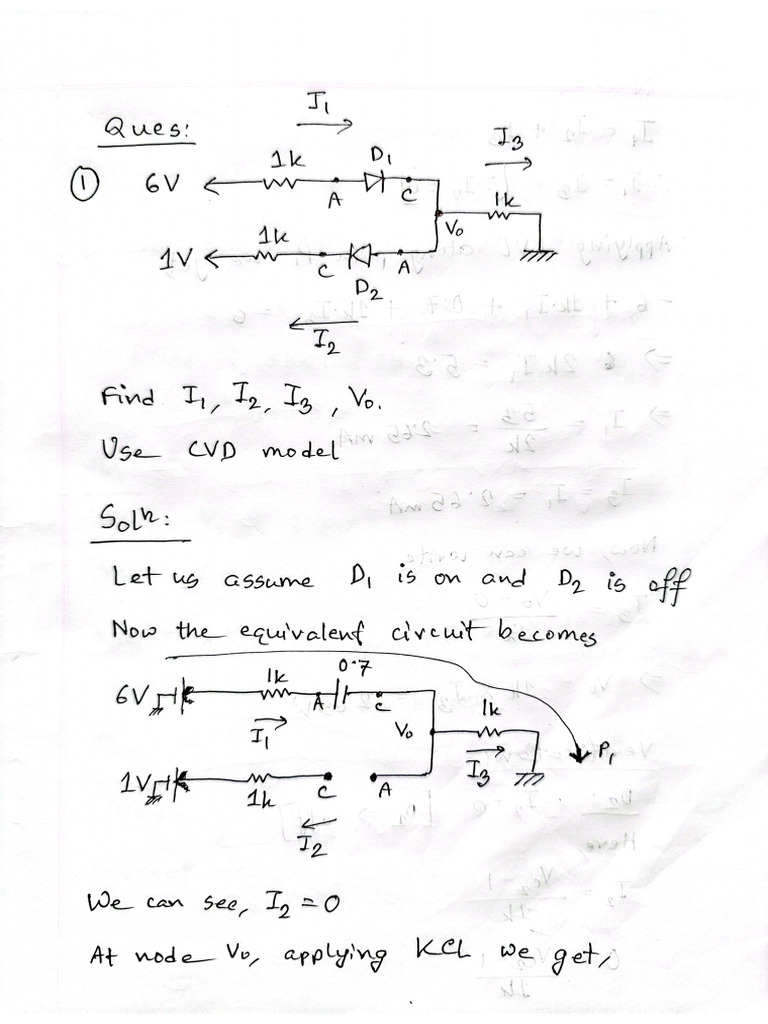 Ques:
I1
① 6V 1k A D1 C I3
1k
V0
1V 1k C A
D2
I2
Find I1, I2, I3, V0.
Use CVD model
Solⁿ:
Let us assume D1 is on and D2 is off
Now the equivalent circuit becomes
6V 1k A 0.7 C
I1 V0 1k
I3 P1
1V 1k C A
I2
We can see, I2 = 0
At node V0, applying KCL we get,